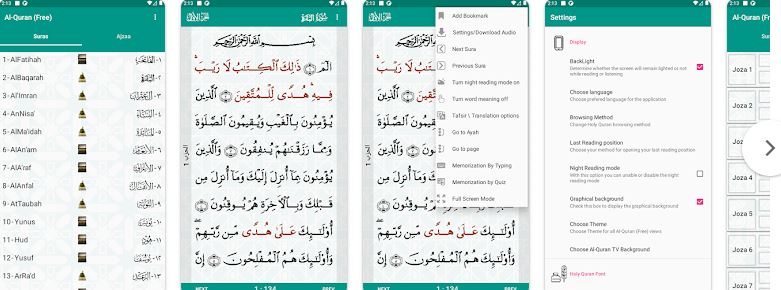 2:13
Al-Quran (Free)
Suras
Ajzaa
1- AlFatihah
١- الفاتحة
2- AlBaqarah
٢- البقرة
3- Al'imran
٣- آل عمران
4- AnNisa'
٤- النساء
5- AlMa'idah
٥- المائدة
6- AlAn'am
٦- الأنعام
7- AlA'raf
٧- الأعراف
8- AlAnfal
٨- الأنفال
9- AtTaubah
٩- التوبة
10- Yunus
١٠- يونس
11- Hud
١١- هود
12- Yusuf
١٢- يوسف
13- ArRa'd
١٣- الرعد
2:13
الجزء الأول
سورة البقرة
بسم الله الرحمن الرحيم
الٓمٓ ذَٰلِكَ الْكِتَٰبُ لَا رَيْبَ
فِيهِ هُدًى لِّلْمُتَّقِينَ الَّذِينَ
يُؤْمِنُونَ بِالْغَيْبِ وَيُقِيمُونَ الصَّلَوٰةَ
وَمِمَّا رَزَقْنَٰهُمْ يُنفِقُونَ وَالَّذِينَ
يُؤْمِنُونَ بِمَا أُنزِلَ إِلَيْكَ وَمَا أُنزِلَ مِن
قَبْلِكَ وَبِالْءَاخِرَةِ هُمْ يُوقِنُونَ
أُولَٰئِكَ عَلَىٰ هُدًى مِّن رَّبِّهِمْ
وَأُولَٰئِكَ هُمُ الْمُفْلِحُونَ إِنَّ
الحزب 1
NEXT
1 - 134
PREV
2:13
الجزء الأول
Add Bookmark
Settings/Download Audio
Next Sura
Previous Sura
Turn night reading mode on
Turn word meaning off
Tafsir \ Translation options
Go to Ayah
Go to page
Memorization By Typing
Memorization by Quiz
Full Screen Mode
الحزب 1
أُولَٰئِكَ عَلَىٰ هُدًى مِّن رَّبِّهِمْ
وَأُولَٰئِكَ هُمُ الْمُفْلِحُونَ إِنَّ
NEXT
1 - 134
PREV
2:13
Settings
Display
BackLight
Determine whether the screen will remain lighted or not while reading or listening
Choose language
Choose prefered language for the application
Browsing Method
Change Holy Quran browsing method
Last Reading position
Choose your method for opening your last reading position
Night Reading mode
With this option you can unable or disable the night reading mode
Graphical background
Check this box to display the graphical background
Choose Theme
Choose Theme for all Al-Quran (Free) views
Choose Al-Quran TV Background
Holy Quran Font
2:13
Al-Quran (Free)
Joza 1
Joza 2
Joza 3
Joza 4
Joza 5
Joza 6
Joza 7